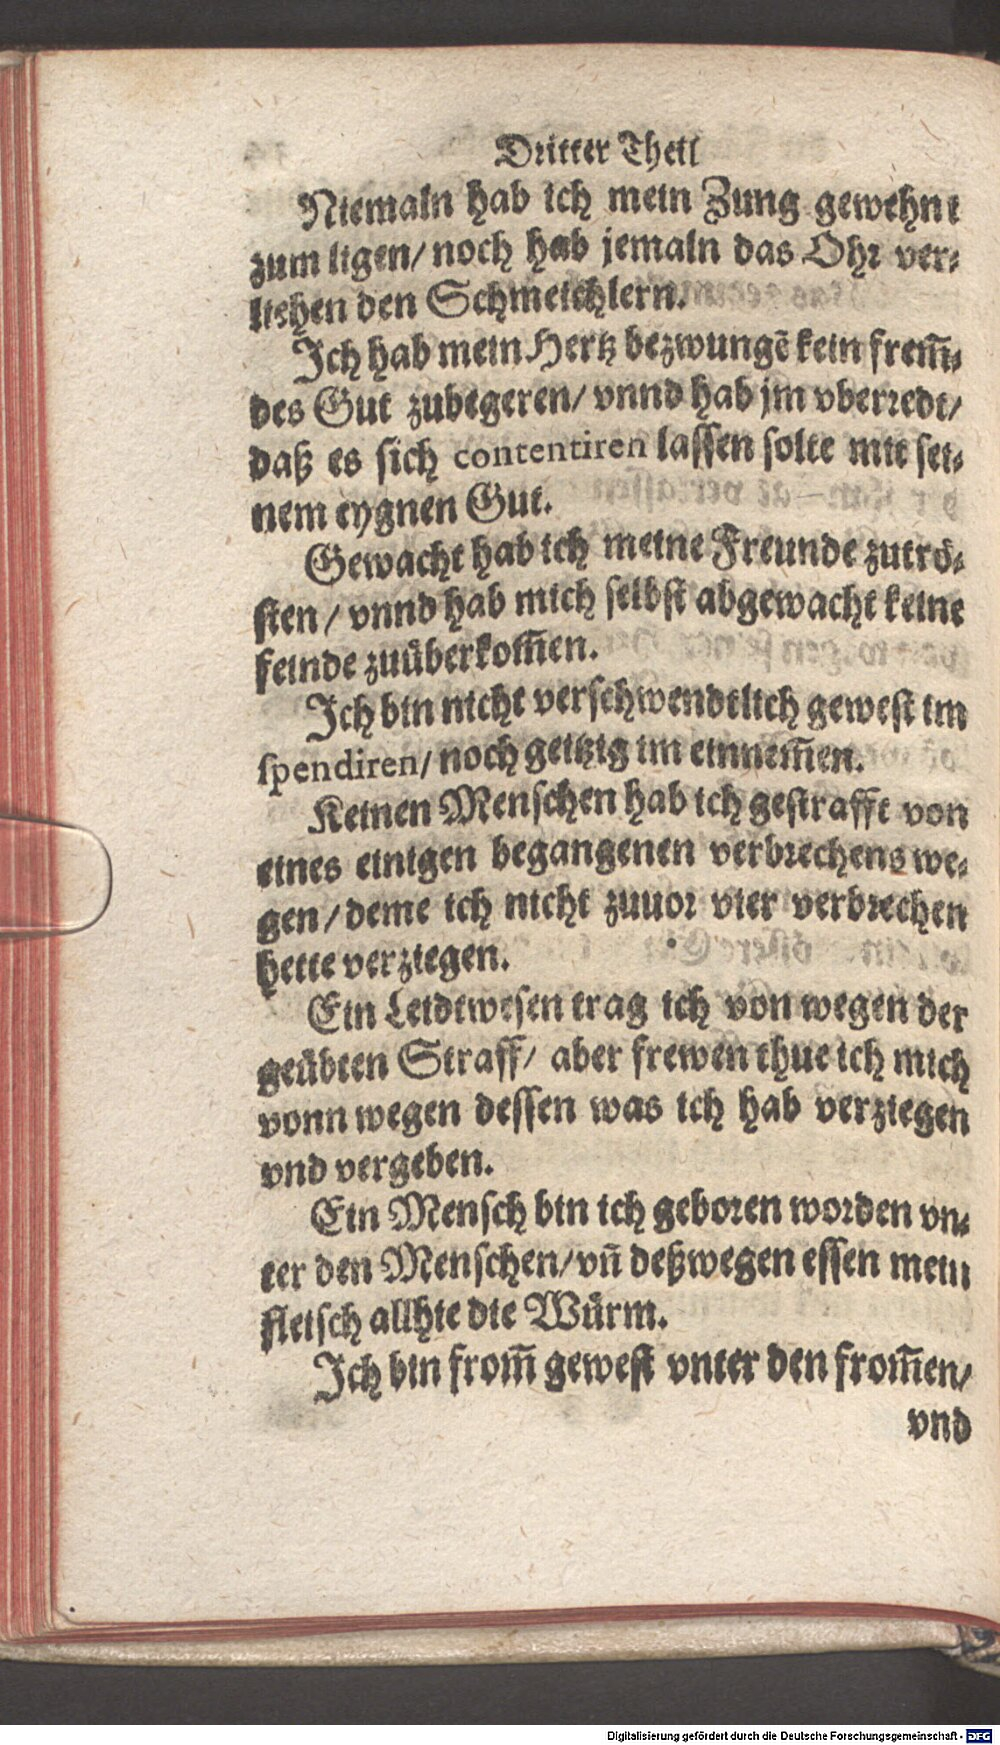 Dritter Theil
Niemaln hab ich mein Zung gewehnt
zum ligen/ noch hab jemaln das Ohr ver-
liehen den Schmeichlern.
Ich hab mein Hertz bezwungē kein frem̄-
des Gut zubegeren/ vnnd hab jm vberredt/
daß es sich contentiren lassen solte mit sei-
nem eygnen Gut.
Gewacht hab ich meine Freunde zutrö-
sten / vnnd hab mich selbst abgewacht keine
feinde zuüberkom̄en.
Ich bin nicht verschwendtlich gewest im
spendiren/ noch geitzig im einnem̄en.
Keinen Menschen hab ich gestrafft von
eines einigen begangenen verbrechens we-
gen/ deme ich nicht zuuor vier verbrechen
hette verziegen.
Ein Leidtwesen trag ich von wegen der
geübten Straff/ aber frewen thue ich mich
vonn wegen dessen was ich hab verziegen
vnd vergeben.
Ein Mensch bin ich geboren worden vn-
ter den Menschen/ vn̄ deßwegen essen mein
fleisch allhie die Würm.
Ich bin from̄ gewest vnter den from̄en/
vnd
Digitalisierung gefördert durch die Deutsche Forschungsgemeinschaft - DFG